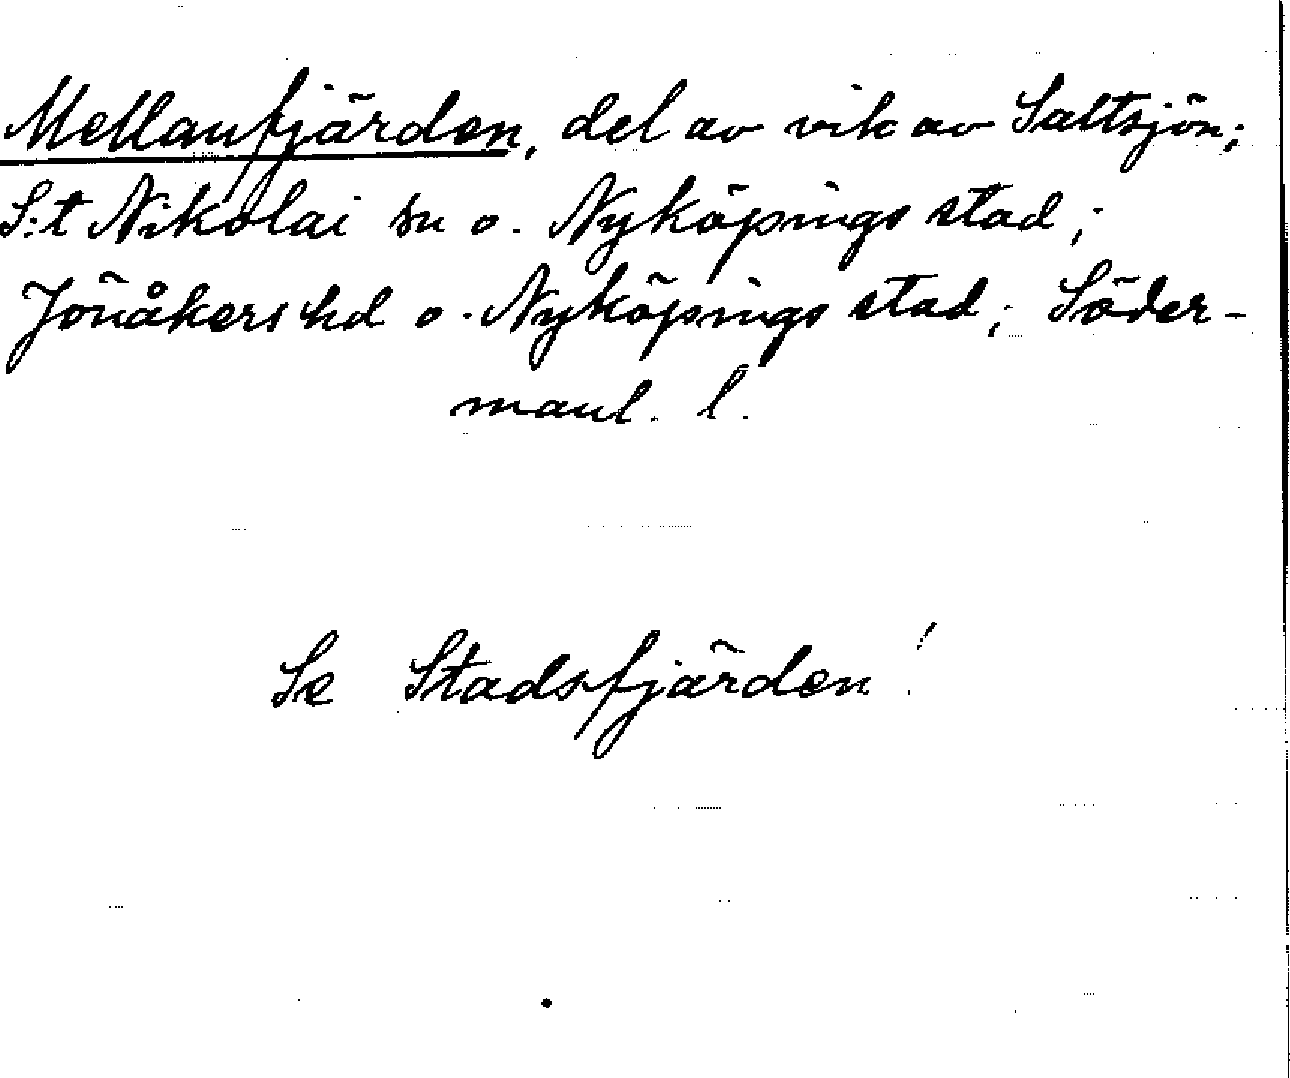 Mellanfjärden, del av vik av Saltsjön;
S:t Nikolai sn o. Nyköpings stad;
Jönåkers hd o. Nyköpings stad; Söder-
manl. l.
Se Stadsfjärden!